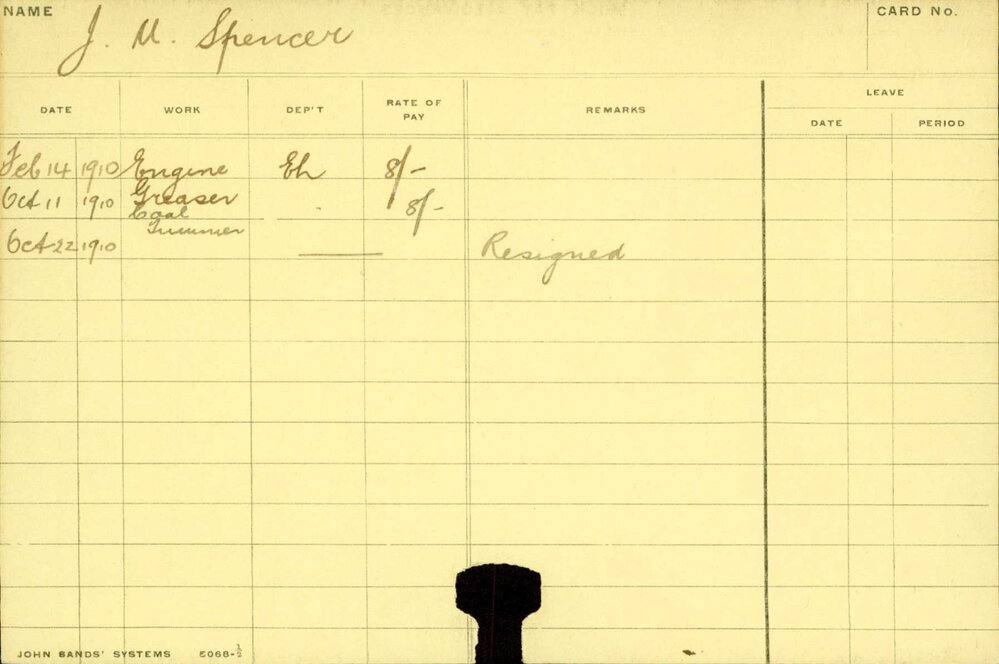 NAME J. M. Spencer CARD No.
DATE WORK DEP'T RATE OF PAY REMARKS LEAVE
DATE PERIOD
Feb 14 1910 Engine Eh 8/-
Oct 11 1910 Greaser 8/-
Coal
Trimmer
Oct 22 1910 Resigned
JOHN SANDS' SYSTEMS 5068-½